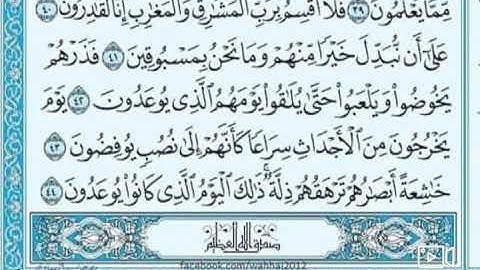 مِّمَّا يَعْلَمُونَ ٣٩ فَلَا أُقْسِمُ بِرَبِّ الْمَشَارِقِ وَالْمَغَارِبِ إِنَّا لَقَادِرُونَ ٤٠
عَلَىٰ أَن نُّبَدِّلَ خَيْرًا مِّنْهُمْ وَمَا نَحْنُ بِمَسْبُوقِينَ ٤١ فَذَرْهُمْ
يَخُوضُوا وَيَلْعَبُوا حَتَّىٰ يُلَاقُوا يَوْمَهُمُ الَّذِي يُوعَدُونَ ٤٢ يَوْمَ
يَخْرُجُونَ مِنَ الْأَجْدَاثِ سِرَاعًا كَأَنَّهُمْ إِلَىٰ نُصُبٍ يُوفِضُونَ ٤٣
خَاشِعَةً أَبْصَارُهُمْ تَرْهَقُهُمْ ذِلَّةٌ ذَٰلِكَ الْيَوْمُ الَّذِي كَانُوا يُوعَدُونَ ٤٤
صدق الله العظيم
facebook.com/wahhaj2012